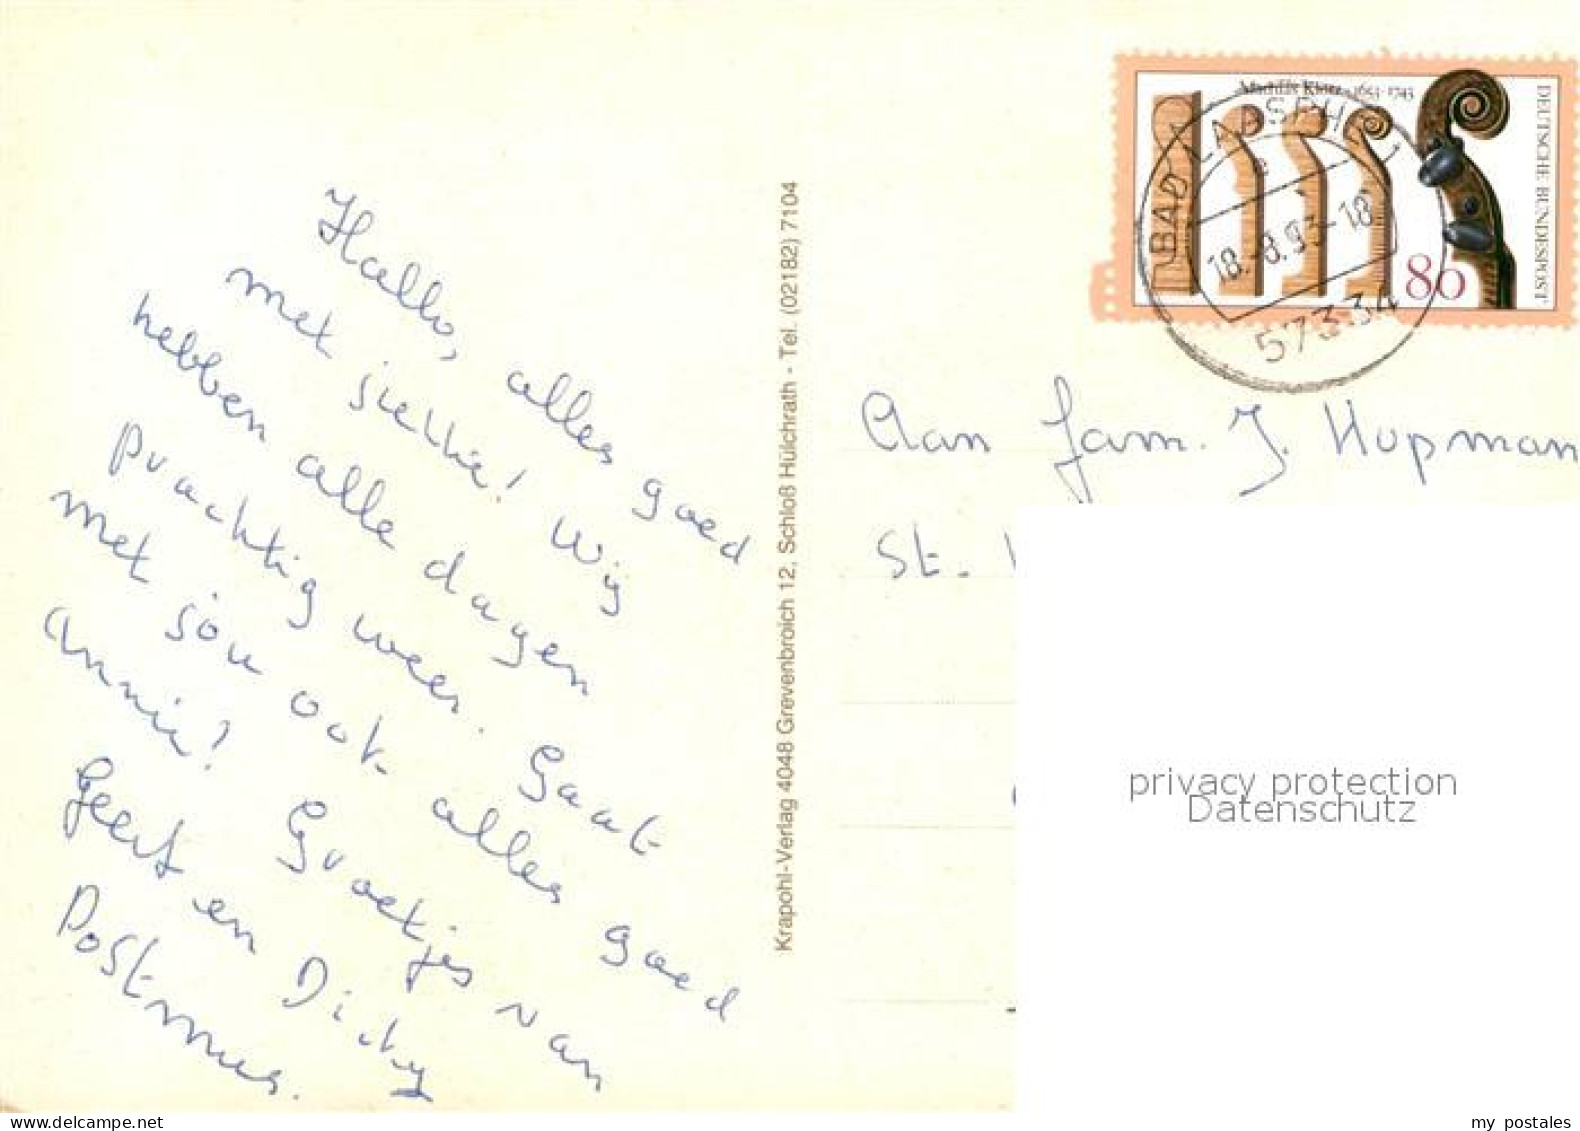 Hallo, alles goed
met jullie! Wij
hebben alle dagen
prachtig weer. Gaat
met jou ook alles goed
Annie? Groetjes van
Geert en Dicky
Postmus.
Krapohl-Verlag 4048 Grevenbroich 12, Schloß Hülchrath - Tel. (02182) 7104
Mathias Klotz · 1653 - 1743
DEUTSCHE BUNDESPOST
80
BAD LAASPHE 1
18.-8.93-18
57334
Aan fam. J. Hopman
St.
privacy protection
Datenschutz
my postales